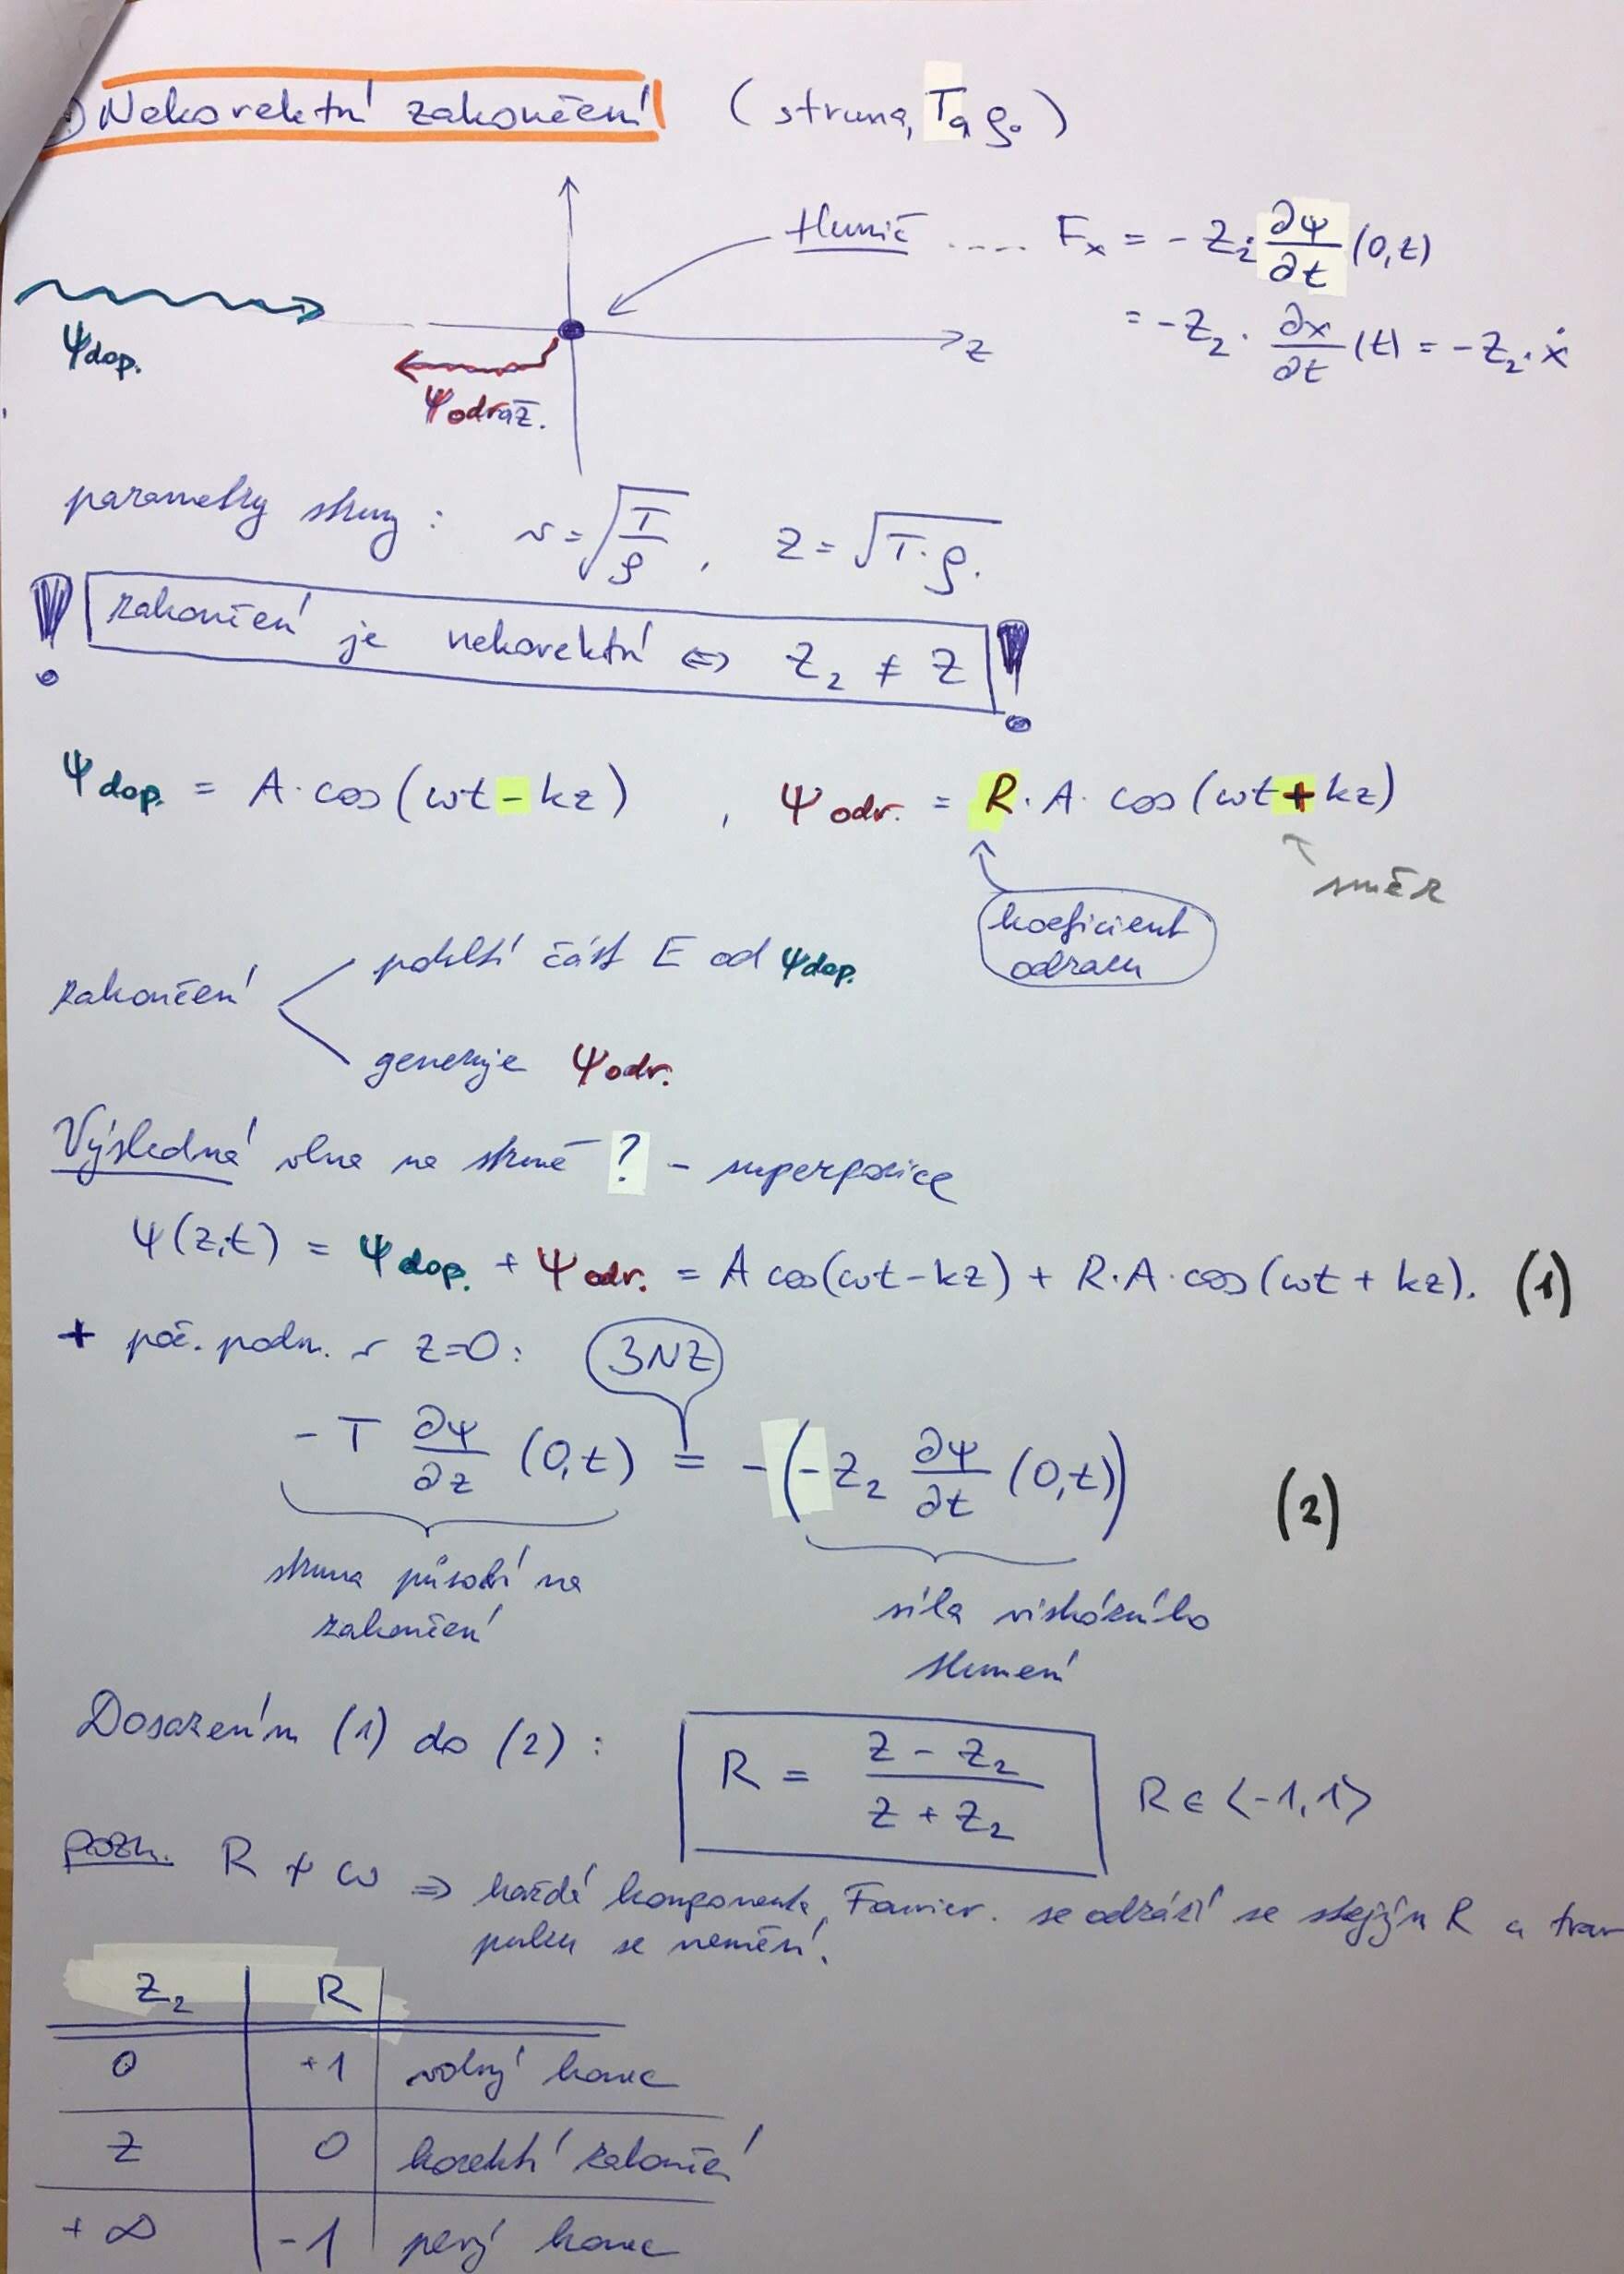 Nekorektní zakončení (struna, T a ρ₀)
tlumič .... Fₓ = - Z₂ · ∂ψ/∂t (0,t)
= - Z₂ · ∂x/∂t (t) = - Z₂ · ẋ
ψ dop.
z
ψ odraž.
parametry struny : v = √(T/ρ) , Z = √(T·ρ).
! zakončení je nekorektní ⇔ Z₂ ≠ Z !
ψ dop. = A · cos(ωt - kz) , ψ odr. = R · A · cos(ωt + kz)
směr
koeficient
odrazu
zakončení
pohltí část E od ψ dop.
generuje ψ odr.
Výsledná vlna na struně ? - superpozice
ψ(z,t) = ψ dop. + ψ odr. = A cos(ωt - kz) + R·A·cos(ωt + kz). (1)
+ poč. podm. v z=0 : 3NZ
- T ∂ψ/∂z (0,t) = - (- Z₂ ∂ψ/∂t (0,t)) (2)
struna působí na
zakončení
síla viskózního
tlumení
Dosazením (1) do (2) : R = (Z - Z₂)/(Z + Z₂) R ∈ ⟨-1, 1⟩
pozn. R ≁ ω ⇒ každá komponenta Fourier. se odráží se stejným R a tvar
pulsu se nemění.
Z₂ | R
0 | +1 | volný konec
Z | 0 | korektní zakončení
+∞ | -1 | pevný konec